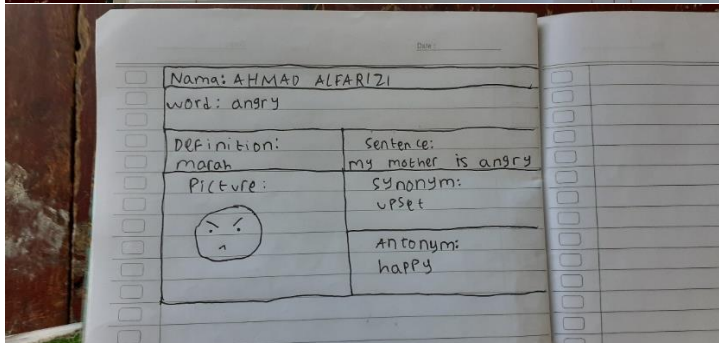 Date:
Nama: AHMAD ALFARIZI
word: angry
Definition:
marah
Sentence:
my mother is angry
Picture:
Synonym:
upset
Antonym:
happy